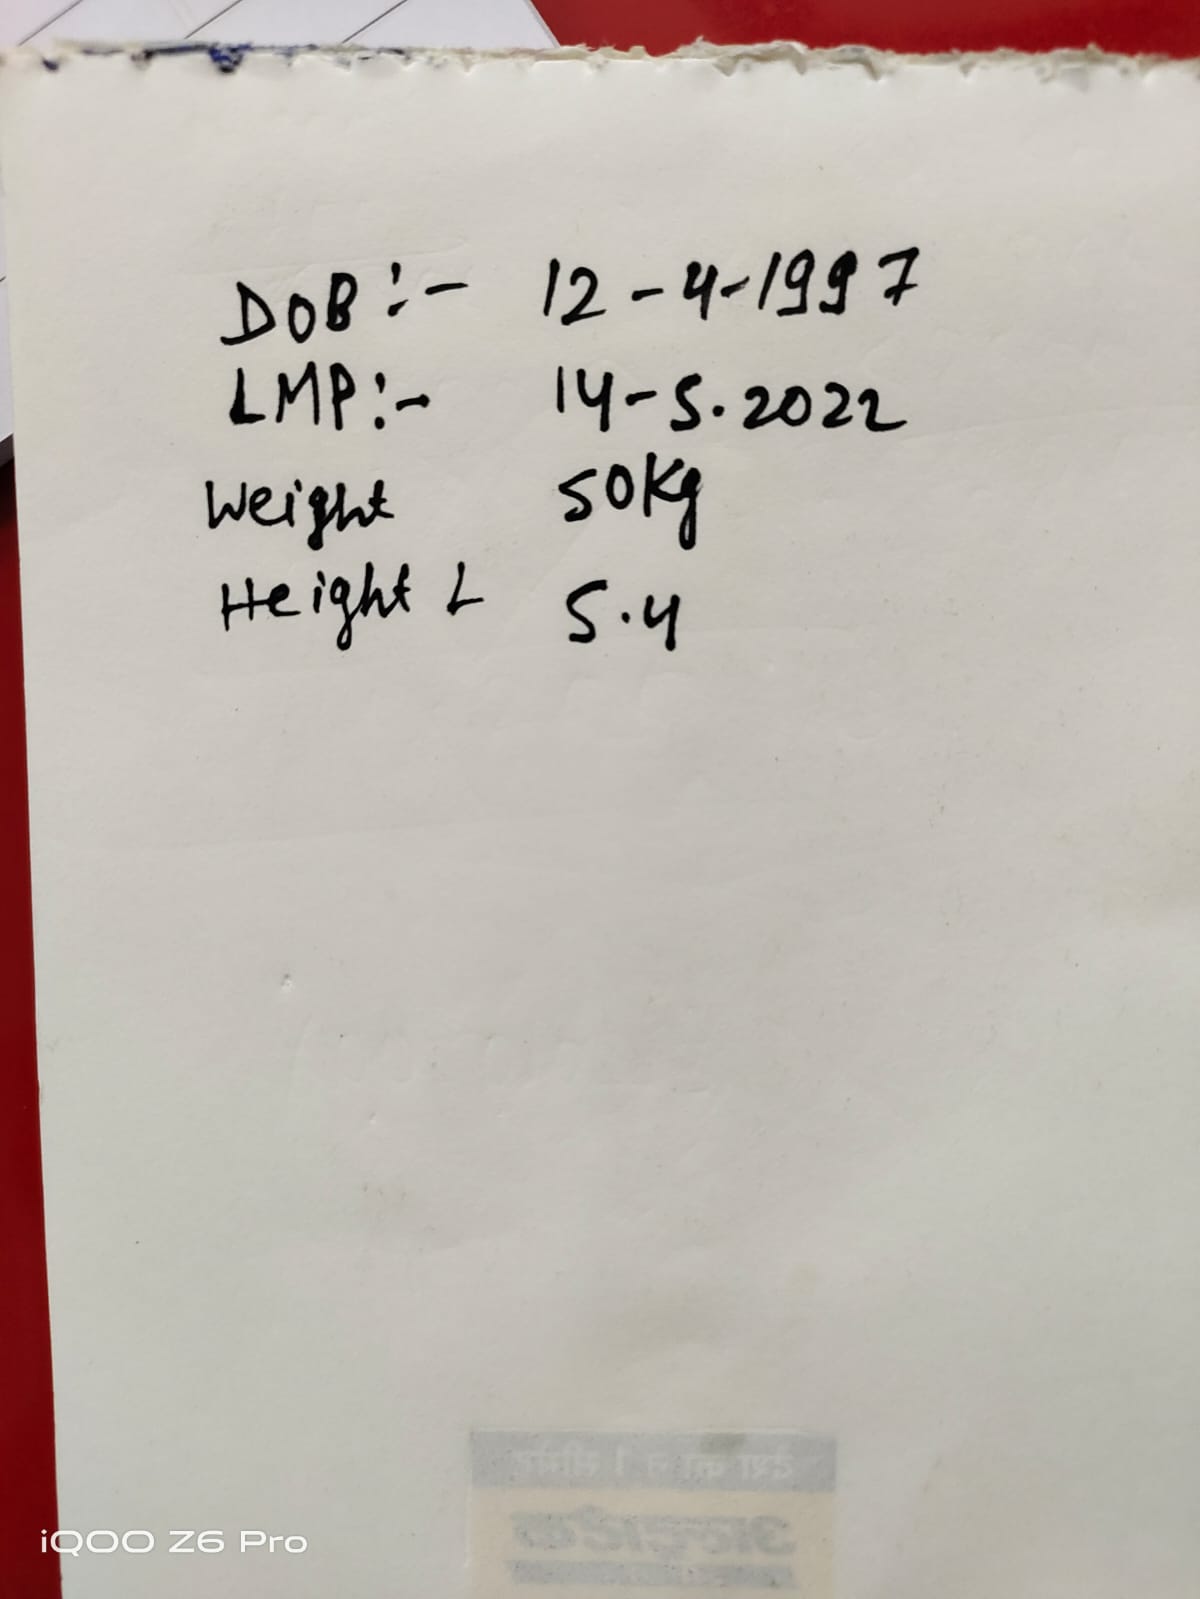 DOB:- 12-4-1997
LMP:- 14-5.2022
Weight 50Kg
Height L 5.4
देश का न. 1 सीमेंट
अल्ट्राटेक
iQOO Z6 Pro